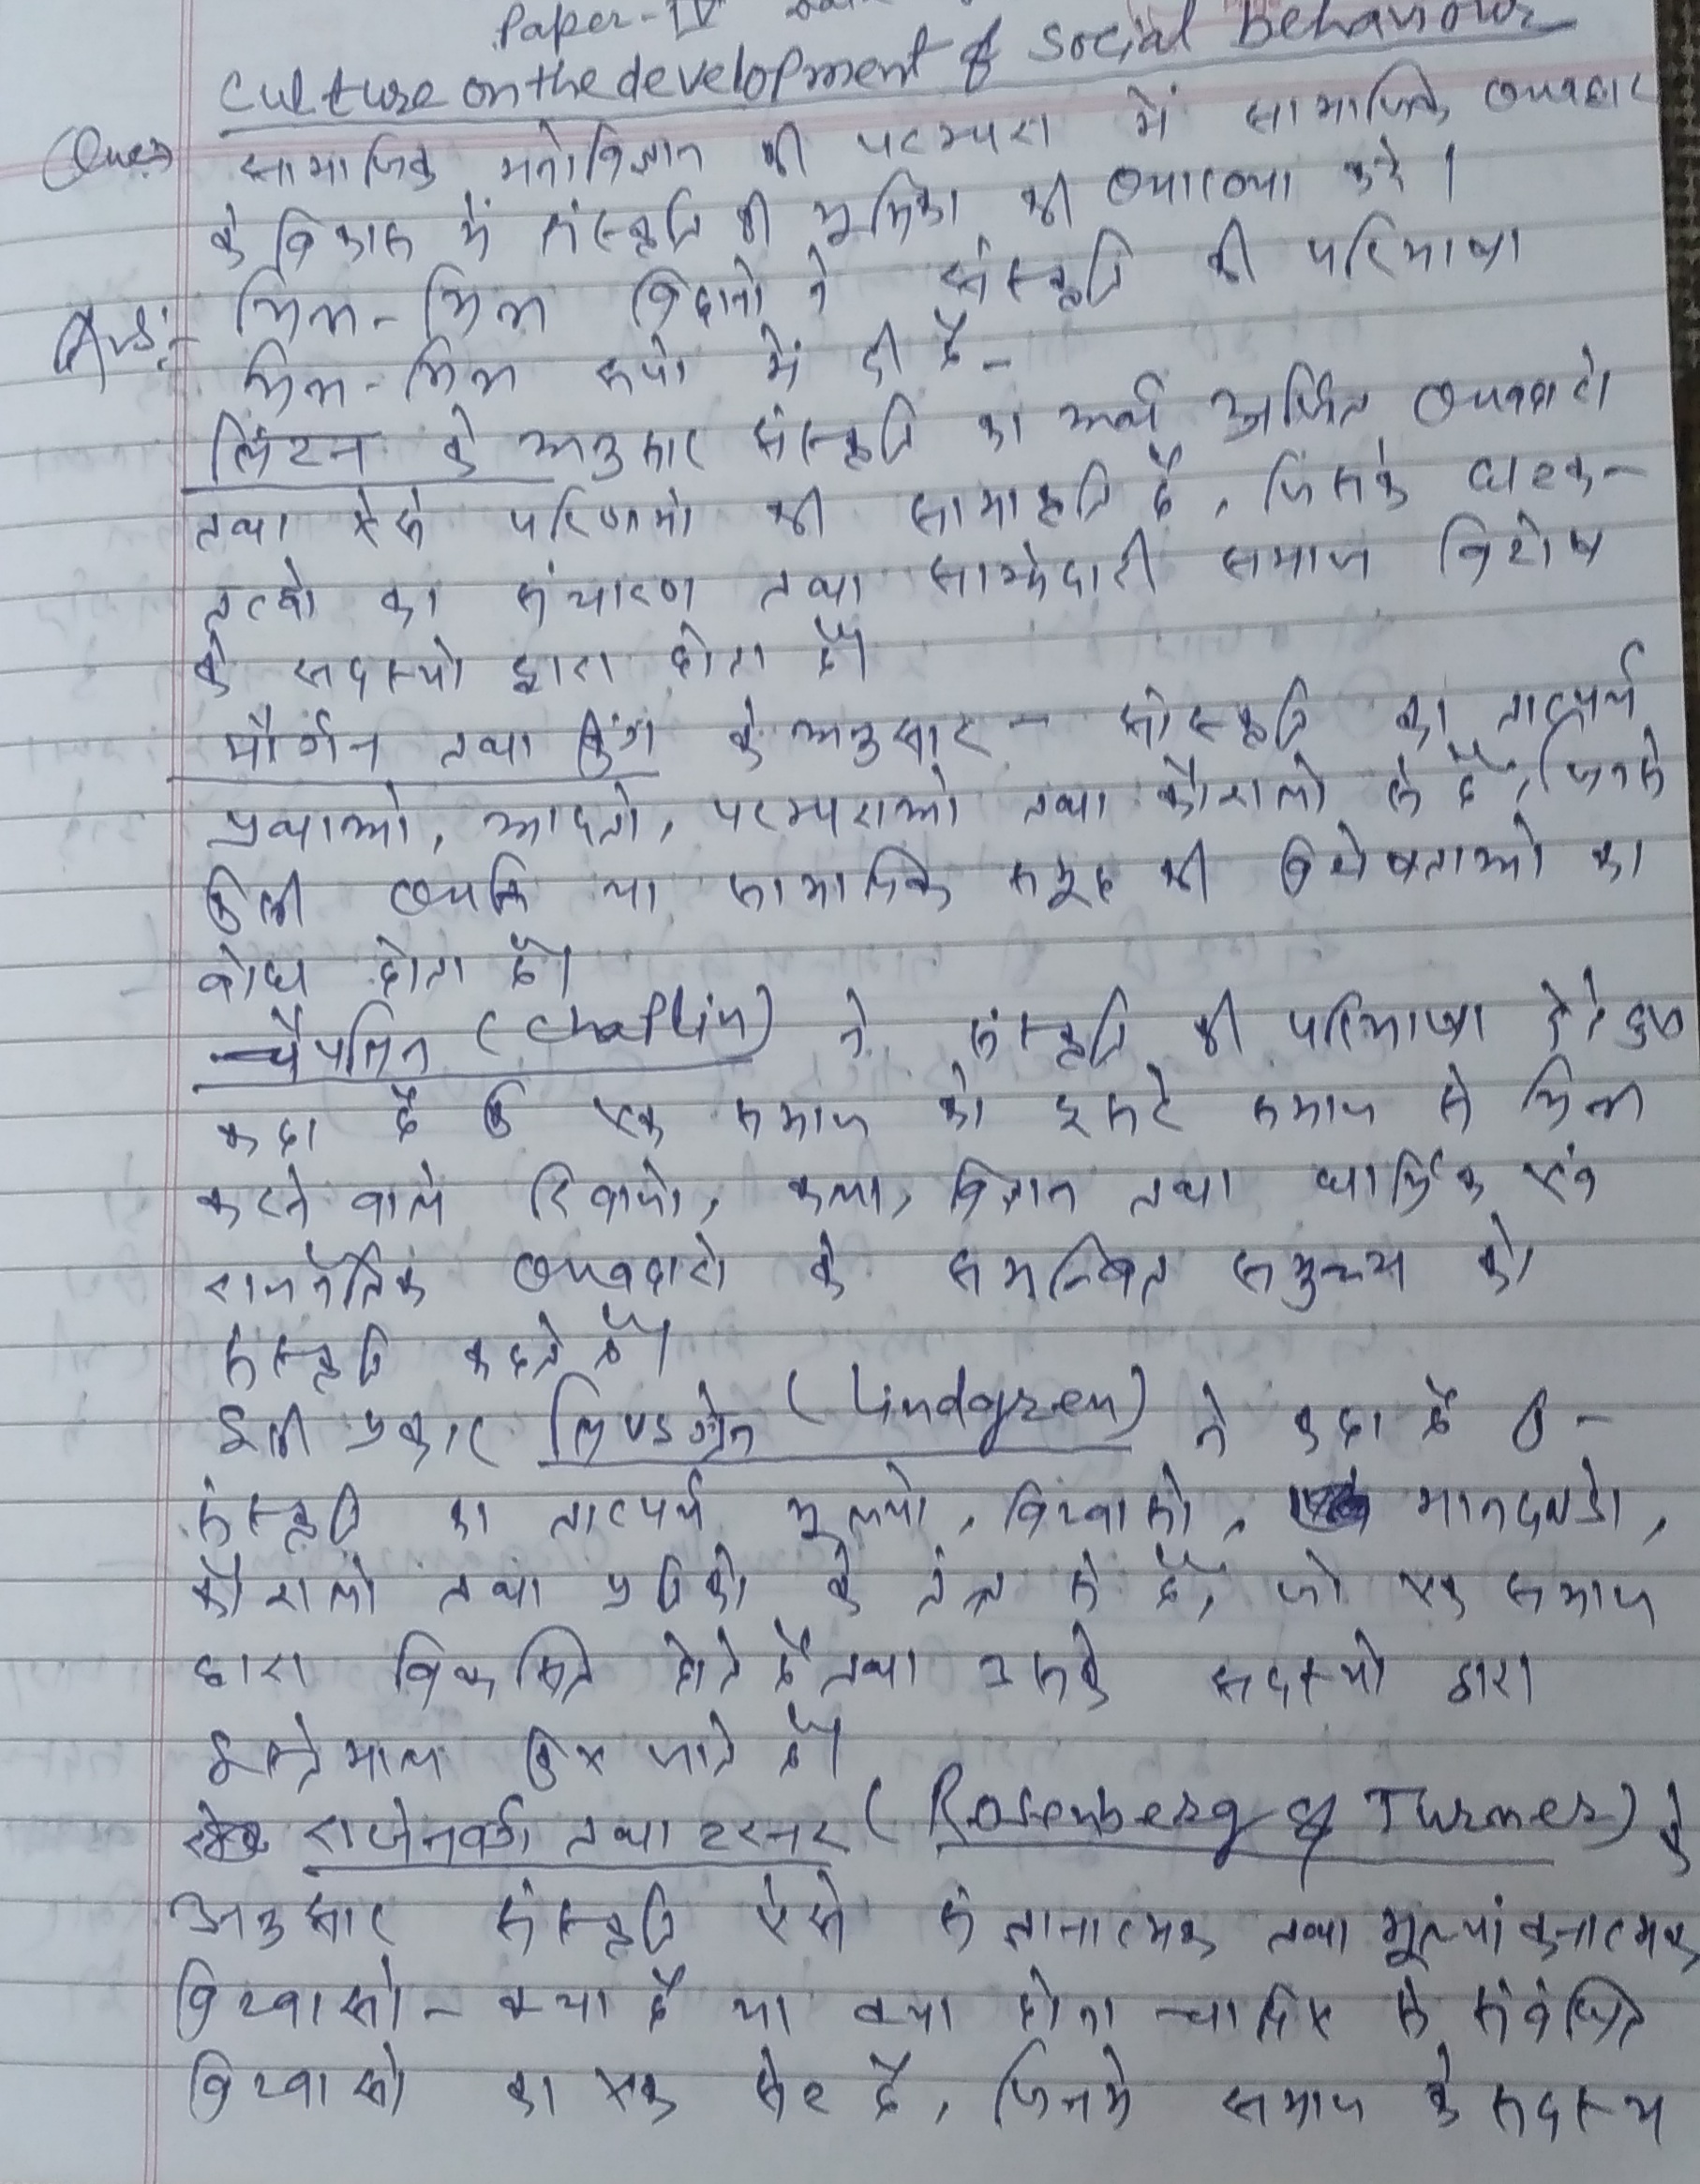 Paper-IV
Culture on the development of social behaviour
Ques सामाजिक मनोविज्ञान की परम्परा में सामाजिक व्यवहार
के विकास में संस्कृति की भूमिका की व्याख्या करे।
Ans:- भिन्न-भिन्न विद्वानो ने संस्कृति की परिभाषा
भिन्न-भिन्न रूपो में दी है-
लिंटन के अनुसार संस्कृति का अर्थ अर्जित व्यवहारो
तथा ऐसे परिणामो की सामाकृति है, जिसके घटक-
तत्वो का संचारण तथा साझेदारी समाज विशेष
के सदस्यो द्वारा होता है।
मौर्गन तथा किंग के अनुसार - संस्कृति का तात्पर्य
प्रथाओ, आदतो, परम्पराओ तथा कौशलो से है, जिनसे
किसी व्यक्ति या सामाजिक समूह की विशेषताओ का
बोध होता है।
चैपलिन (Chaplin) ने संस्कृति की परिभाषा देते हुए
कहा है कि एक समाज को दूसरे समाज से भिन्न
करने वाले रिवाजो, कला, विज्ञान तथा धार्मिक एवं
राजनैतिक व्यवहारो के समन्वित समुच्चय को
संस्कृति कहते है।
इसी प्रकार लिण्डग्रेन (Lindgren) ने कहा है कि -
संस्कृति का तात्पर्य मूल्यो, विश्वासो, मानदण्डो,
कौशलो तथा प्रतिको के तंत्र से है, जो एक समाज
द्वारा विकसित होते है तथा उसके सदस्यो द्वारा
इस्तेमाल किए जाते है।
राजेनवर्ग तथा टरनर (Rosenberg & Turner) के
अनुसार संस्कृति ऐसे संज्ञानात्मक तथा मूल्यांकनात्मक
विश्वासो - क्या है या क्या होना चाहिए से संबंधित
विश्वासो का एक सेट है, जिनमे समाज के सदस्य